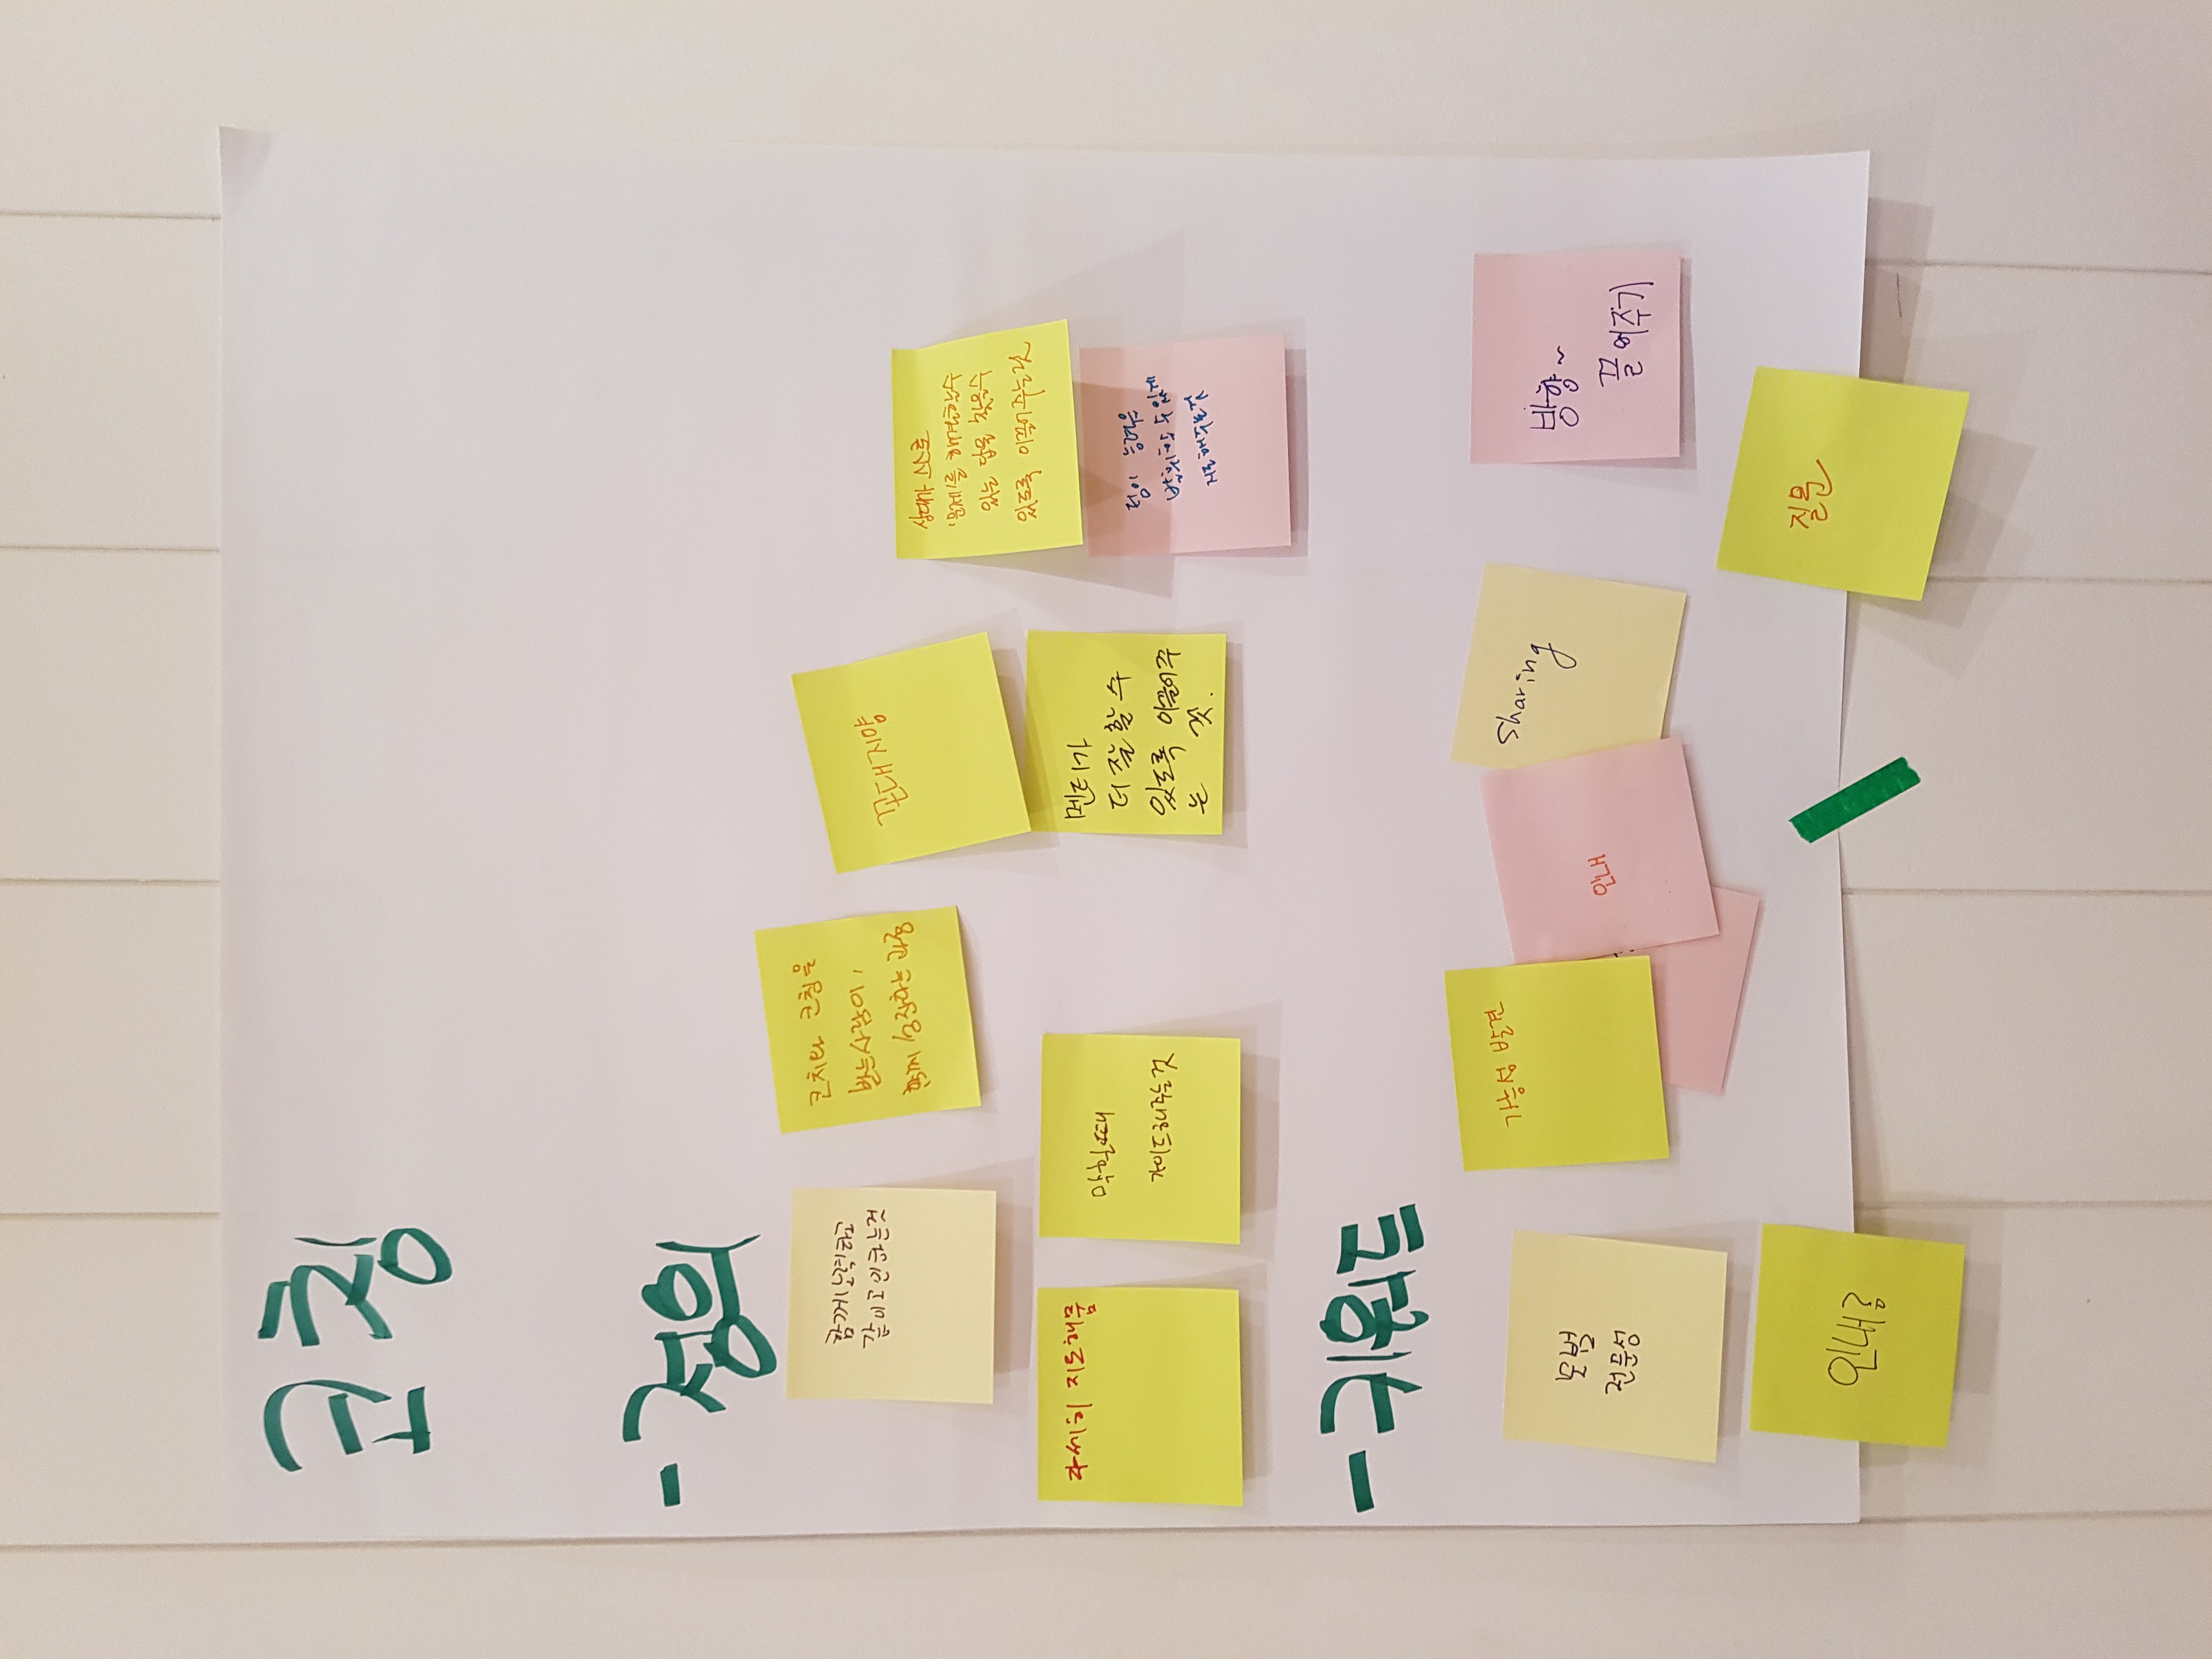 코칭
- 정의
함께 노력하고
같이 고민하는것
코치와 코칭을
받는사람이,
함께 성장하는 과정
꼰대지양
상대가 스스로
'문제'를 해결할수
있는 답을 찾을수
있도록 이끌어주는것
자세히 지도해줌
막힐때
가이드해주는것
멘티가
더 잘 할 수
있도록 이끌어주
는 것.
팀이 능력을
발휘할 수 있게
지도해주는것
- 키워드
모범
전문성
가능성 발견
인내
Sharing
방향~
끌어주기
인내
질문